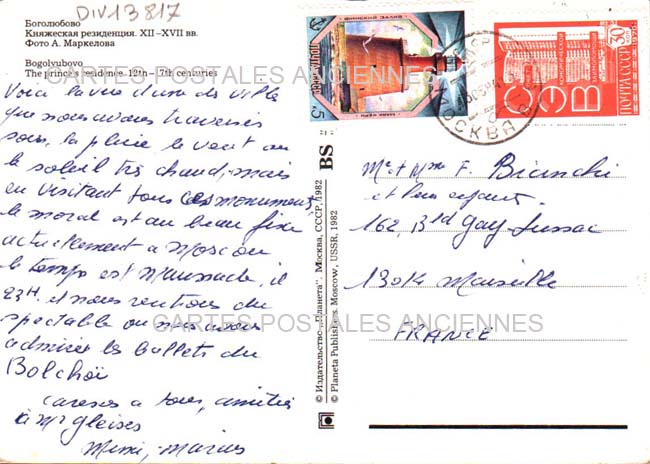 DIV13817
Боголюбово
Княжеская резиденция. XII–XVII вв.
Фото А. Маркелова
Bogolyubovo
The princes residence 12th–17th centuries
CARTES POSTALES ANCIENNES
Voici la vue d'une des ville
que nous avons traversées
sous, la pluie le vent ou
le soleil très chaud, mais
en visitant tous ces monuments,
le moral est au beau fixe
actuellement a Moscou
le temps est maussade, il
23H. et nous rentrons du
spectable ou nous avons
admirer les ballets du
Bolchoï
caresses a tous, amitiés
à Mr gleises
Mimi, Marius
5к
ПОЧТА СССР
ФИНСКИЙ ЗАЛИВ
МОСКВА
30
ПОЧТА СССР
СЭВ
BS
© Издательство „Планета". Москва, СССР, 1982
© Planeta Publishers, Moscow, USSR, 1982
Mr et Mme F. Bianchi
et leurs enfants.
162, Bd Gay-Lussac
13014 Marseille
CARTES POSTALES ANCIENNES
FRANCE